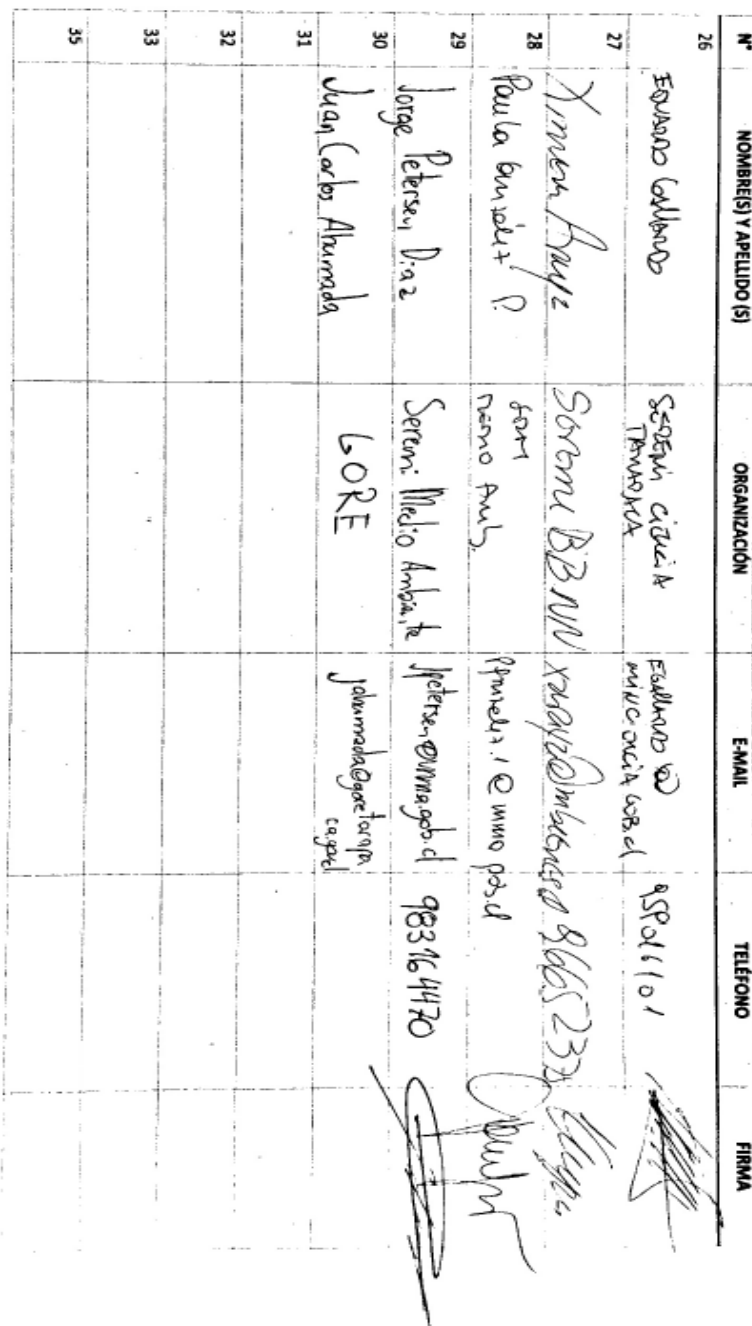 N° NOMBRE(S) Y APELLIDO (S) ORGANIZACIÓN E-MAIL TELÉFONO FIRMA
26 EDUARDO GALLARDO SEREMI CIENCIA TARAPACA EGALLARDO @ MINCIENCIA.GOB.cl
27 Ximena Araya Seremi BBNN
28 Paula González P. Medio Amb.
29 Jorge Petersen Diaz Seremi Medio Ambiente jpetersen@mma.gob.cl 983164470
30 Juan Carlos Ahumada GORE jahumada@goretarapa
31
32
33
35